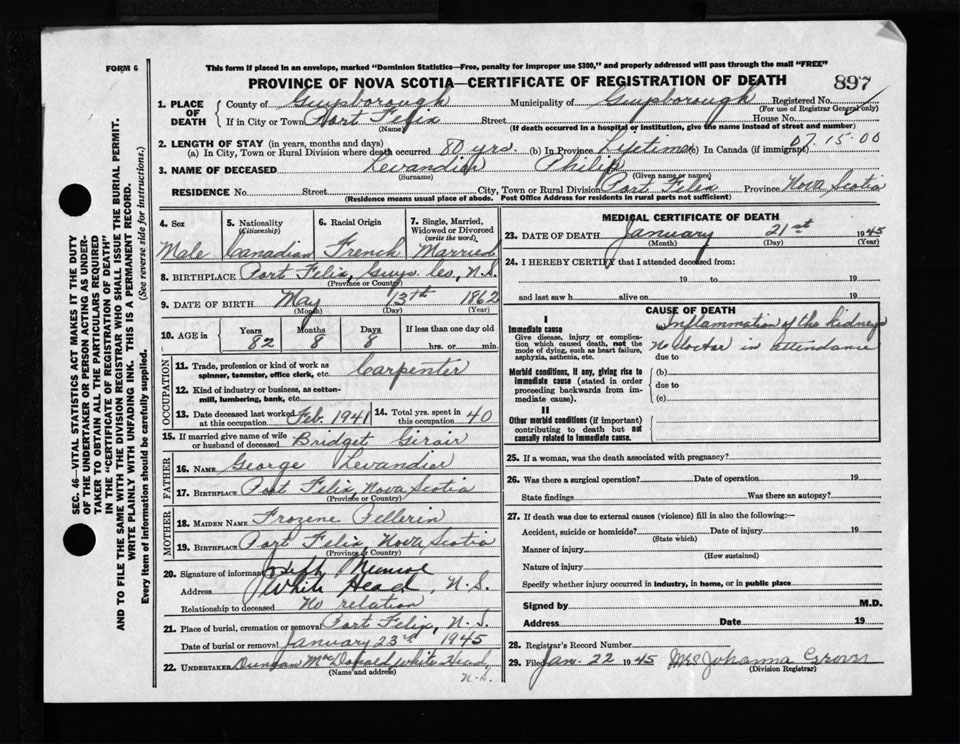 FORM 6
This form if placed in an envelope, marked "Dominion Statistics—Free, penalty for improper use $300," and properly addressed will pass through the mail "FREE"
PROVINCE OF NOVA SCOTIA—CERTIFICATE OF REGISTRATION OF DEATH
897
1. PLACE OF DEATH { County of Guysborough Municipality of Guysborough Registered No.
(For use of Registrar General only)
If in City or Town Port Felix Street House No.
(Name) (If death occurred in a hospital or institution, give the name instead of street and number)
07.15.00
2. LENGTH OF STAY (in years, months and days)
(a) In City, Town or Rural Division where death occurred 80 yrs. (b) In Province Lifetime (c) In Canada (if immigrant)
3. NAME OF DECEASED Levandier Philip
(Surname) (Given name or names)
RESIDENCE No. Street City, Town or Rural Division Port Felix Province Nova Scotia
(Residence means usual place of abode. Post Office Address for residents in rural parts not sufficient)
4. Sex Male
5. Nationality (Citizenship) Canadian
6. Racial Origin French
7. Single, Married, Widowed or Divorced (write the word) Married
8. BIRTHPLACE Port Felix, Guys. Co., N.S.
(Province or Country)
9. DATE OF BIRTH May 13th 1862
(Month) (Day) (Year)
10. AGE in { Years 82 Months 8 Days 8 If less than one day old hrs. or min.
OCCUPATION
11. Trade, profession or kind of work as spinner, teamster, office clerk, etc. Carpenter
12. Kind of industry or business, as cotton-mill, lumbering, bank, etc.
13. Date deceased last worked at this occupation Feb. 1941
14. Total yrs. spent in this occupation 40
15. If married give name of wife or husband of deceased Bridget Giroir
FATHER
16. NAME George Levandier
17. BIRTHPLACE Port Felix, Nova Scotia
(Province or Country)
MOTHER
18. MAIDEN NAME Frozene Pellerin
19. BIRTHPLACE Port Felix, Nova Scotia
(Province or Country)
20. Signature of informant Joseph Munroe
Address White Head, N.S.
Relationship to deceased No relation
21. Place of burial, cremation or removal Port Felix, N.S.
Date of burial or removal January 23rd 1945
22. UNDERTAKER Duncan MacDonald White Head,
(Name and address) N.S.
MEDICAL CERTIFICATE OF DEATH
23. DATE OF DEATH January 21st 1945
(Month) (Day) (Year)
24. I HEREBY CERTIFY that I attended deceased from:
19 to 19
and last saw h alive on 19
CAUSE OF DEATH
I
Immediate cause
Give disease, injury or complication which caused death, not the mode of dying, such as heart failure, asphyxia, asthenia, etc.
(a) Inflammation of the kidneys
No doctor in attendance
due to
Morbid conditions, if any, giving rise to immediate cause (stated in order proceeding backwards from immediate cause).
(b)
due to
(c)
II
Other morbid conditions (if important) contributing to death but not causally related to immediate cause.
25. If a woman, was the death associated with pregnancy?
26. Was there a surgical operation? Date of operation 19
State findings Was there an autopsy?
27. If death was due to external causes (violence) fill in also the following:—
Accident, suicide or homicide? Date of injury 19
(State which)
Manner of injury
(How sustained)
Nature of injury
Specify whether injury occurred in industry, in home, or in public place
Signed by M.D.
Address Date 19
28. Registrar's Record Number
29. Filed Jan. 22 1945 Mrs Johanna
(Division Registrar)
SEC. 46—VITAL STATISTICS ACT MAKES IT THE DUTY
OF THE UNDERTAKER OR PERSON ACTING AS UNDERTAKER TO OBTAIN ALL THE PARTICULARS REQUIRED
IN THE "CERTIFICATE OF REGISTRATION OF DEATH"
AND TO FILE THE SAME WITH THE DIVISION REGISTRAR WHO SHALL ISSUE THE BURIAL PERMIT.
WRITE PLAINLY WITH UNFADING INK. THIS IS A PERMANENT RECORD.
Every item of information should be carefully supplied. (See reverse side for instructions.)